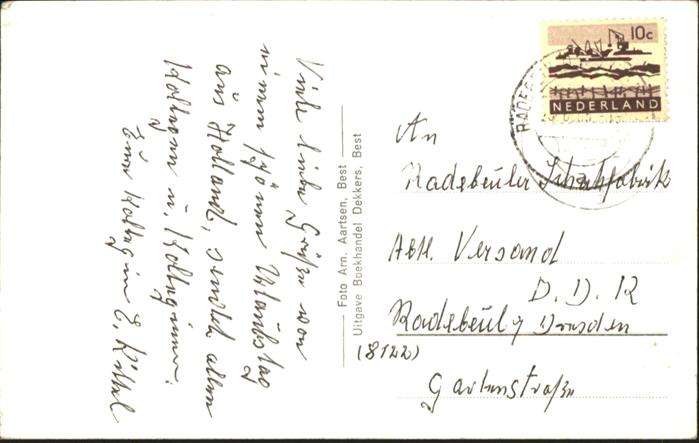 Viele liebe Grüße von
einem schönen Urlaubstag
aus Holland, sendet allen
Kollegen u. Kolleginnen.
Eure Kollegin E. Kittel
Foto Arn. Aartsen, Best
Uitgave Boekhandel Dekkers, Best
10c
NEDERLAND
An
Radebeuler Schuhfabrik
Abtl. Versand
D. D. R
Radebeul / Dresden
(8122)
Gartenstraße